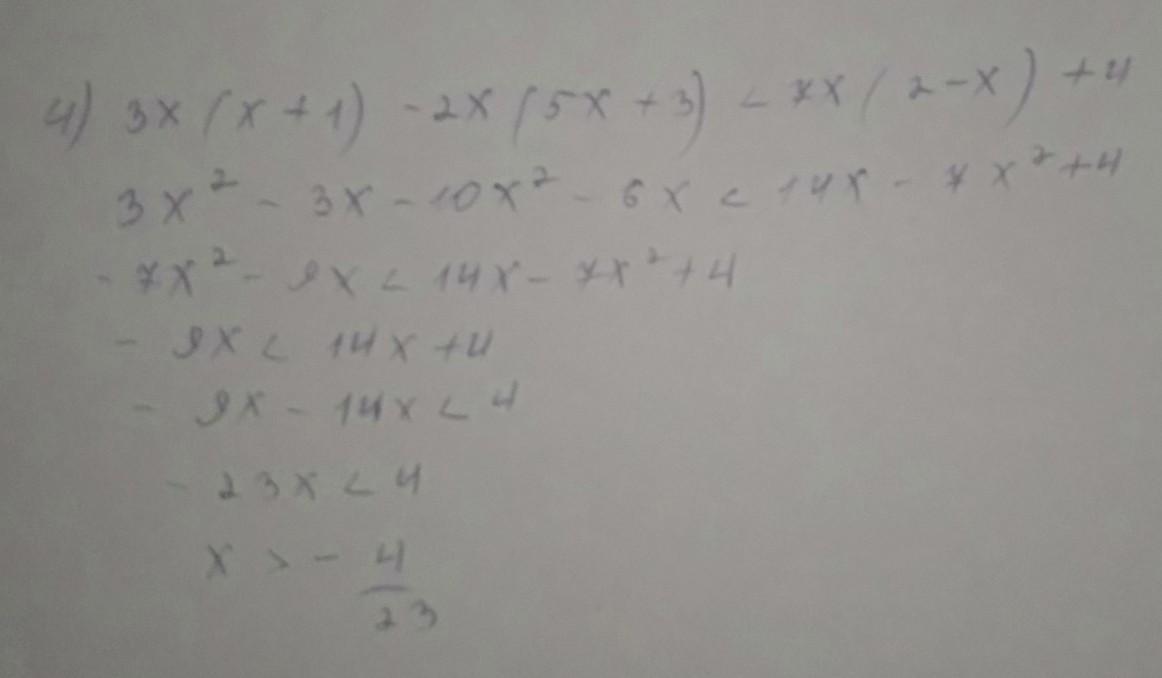 4) 3x(x+1) -2x(5x+3) < 7x(2-x) +4
3x² - 3x - 10x² - 6x < 14x - 7x² +4
- 7x² - 9x < 14x - 7x² +4
- 9x < 14x +4
- 9x - 14x < 4
- 23x < 4
x > - 4/23